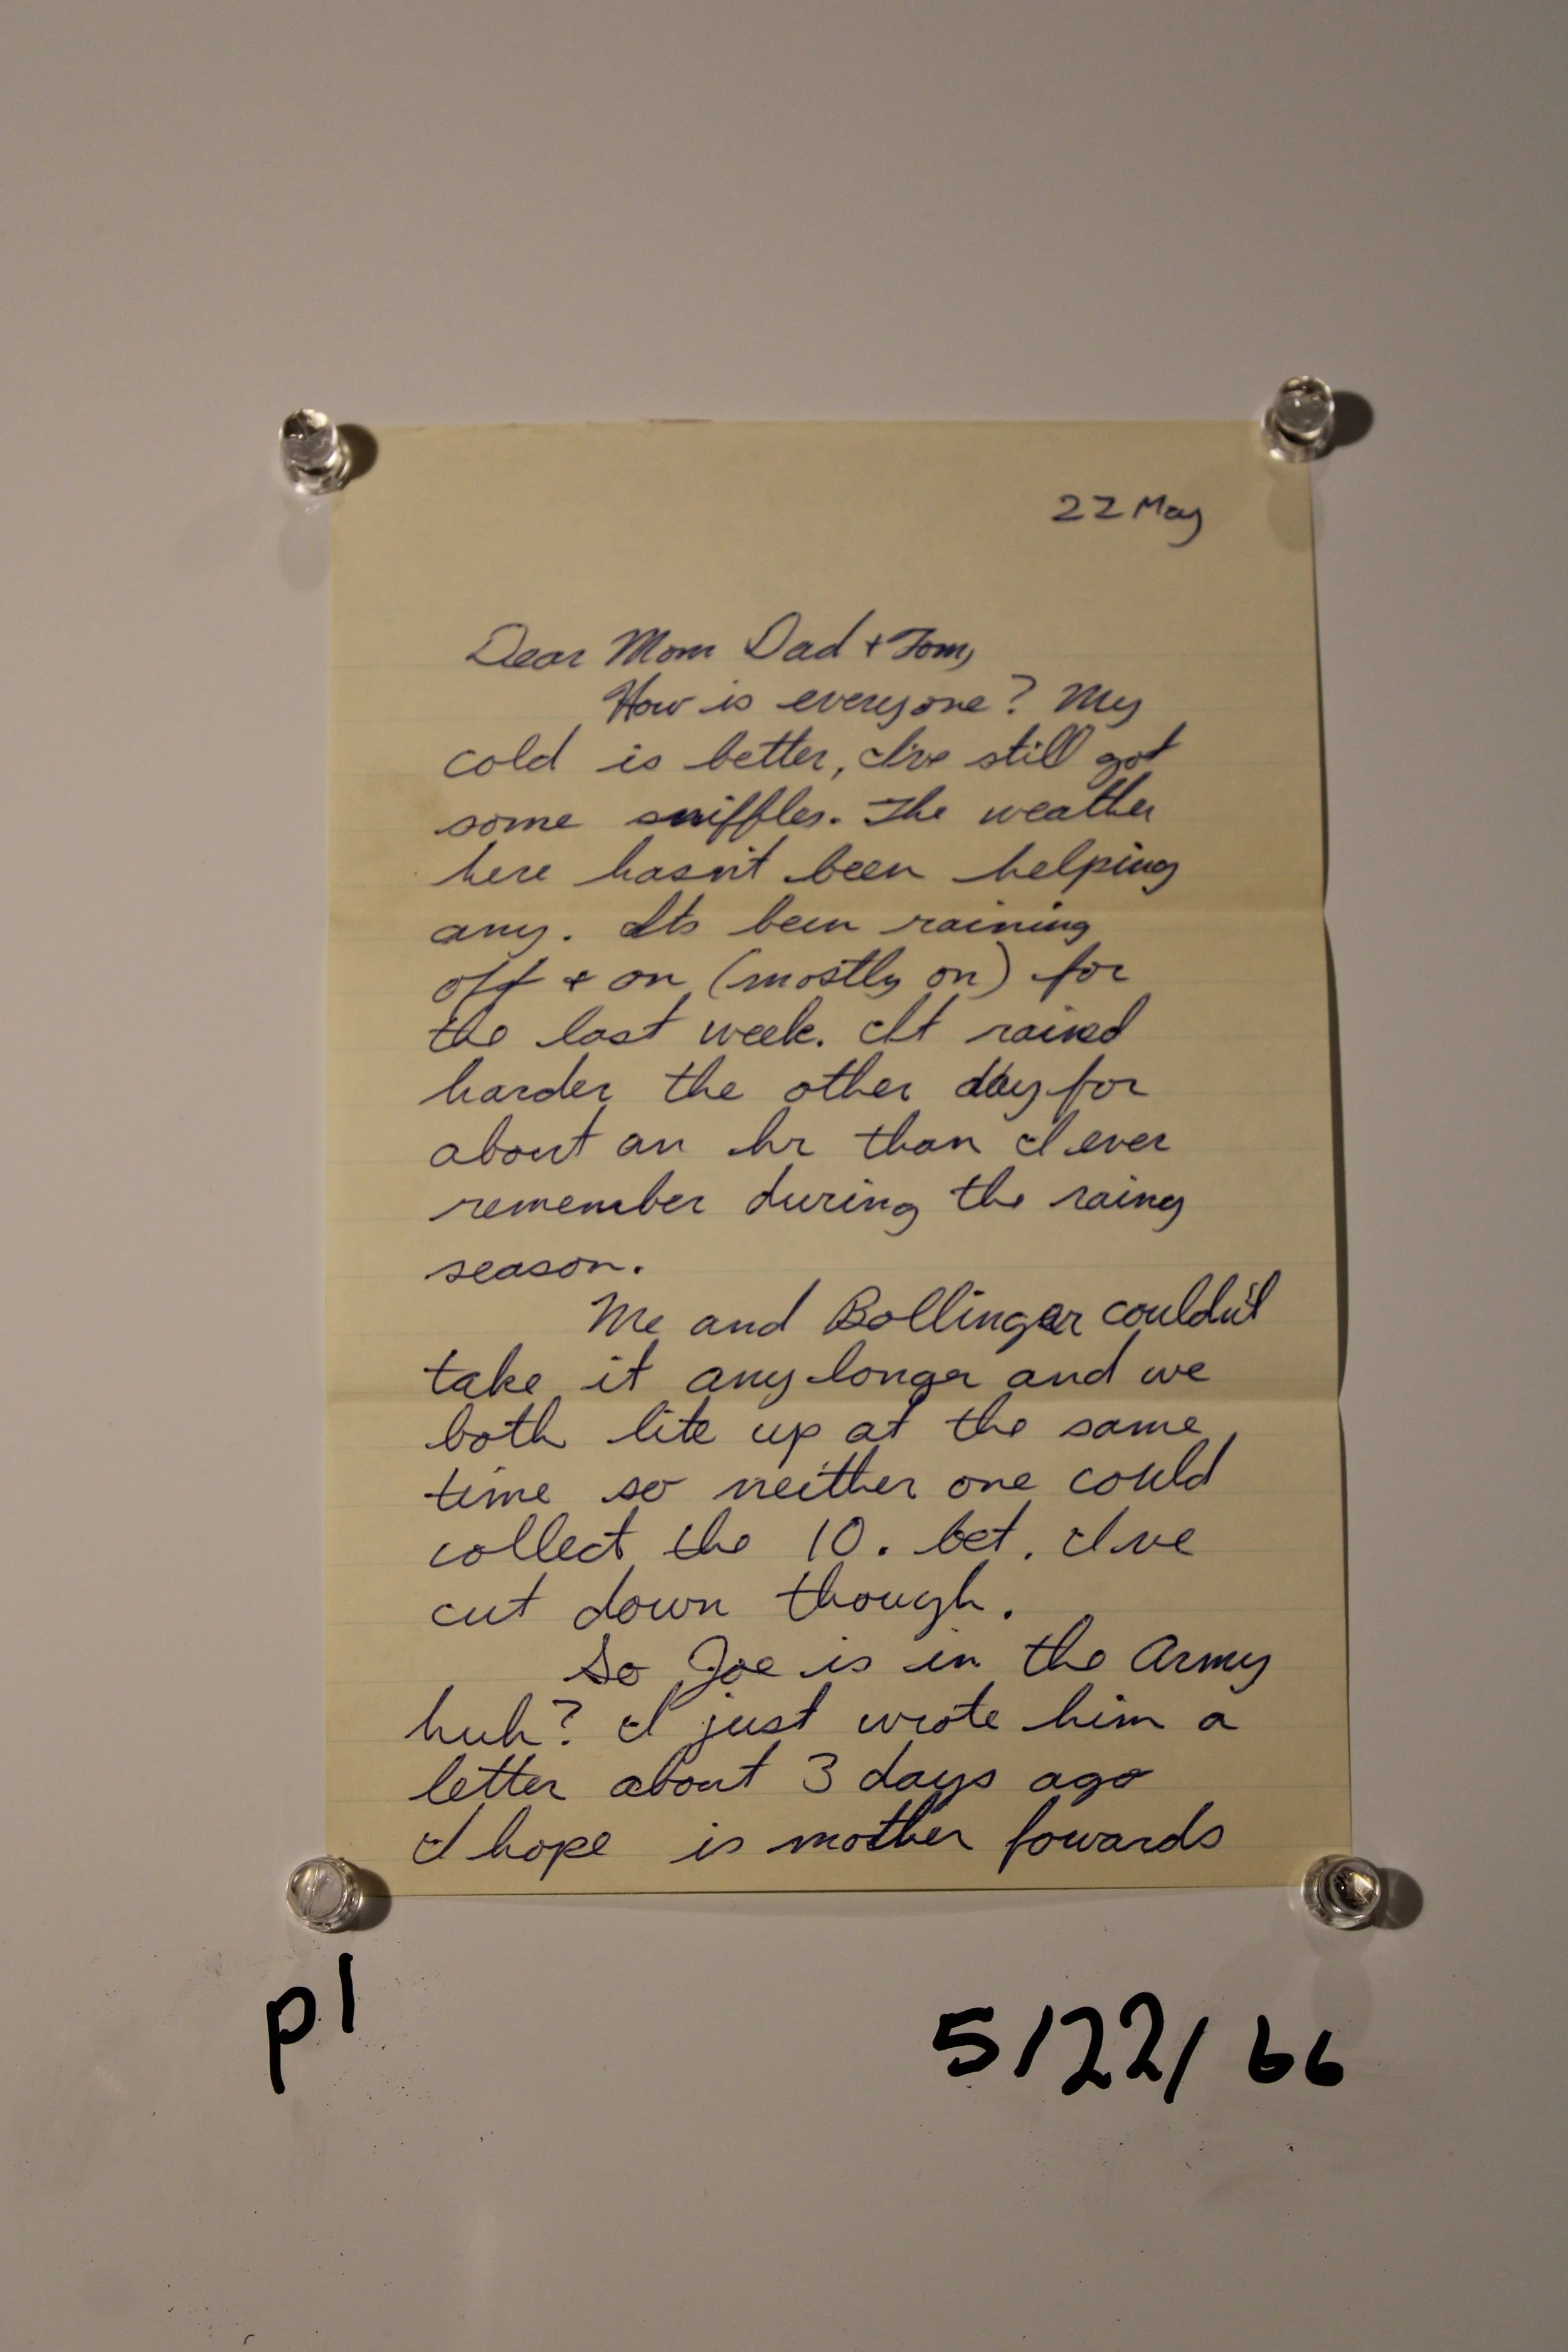 22 May
Dear Mom Dad + Tom,
How is everyone? My
cold is better, I've still got
some sniffles. The weather
here hasn't been helping
any. Its been raining
off + on (mostly on) for
the last week. It rained
harder the other day for
about an hr than I ever
remember during the rainy
season.
Me and Bollinger couldn't
take it any longer and we
both lite up at the same
time so neither one could
collect the 10. bet. I've
cut down though.
So Joe is in the Army
huh? I just wrote him a
letter about 3 days ago
I hope is mother fowards
p1
5/22/66